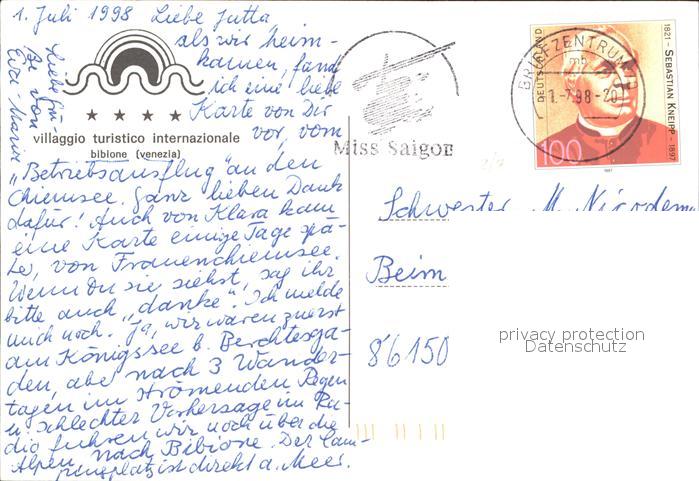 1. Juli 1998 Liebe Jutta
als wir heim-
kamen, fand
ich eine liebe
Karte von Dir
vor, vom
"Betriebsausflug" an den
Chiemsee. Ganz lieben Dank
dafür! Auch von Klara kam
eine Karte einige Tage spä-
ter, von Frauenchiemsee.
Wenn Du sie siehst, sag ihr
bitte auch "danke". Ich melde
mich noch. Ja, wir waren zuerst
am Königssee b. Berchtesga-
den, aber nach 3 Wander-
tagen im strömenden Regen
u. schlechter Vorhersage im Ra-
dio fuhren wir noch über die
Alpen nach Bibione. Der Cam-
pingplatz ist direkt a. Meer.
Liebe
von
Eva-Maria
villaggio turistico internazionale
bibione (venezia)
Miss Saigon
BRIEFZENTRUM
mb
1.-7.98-20
DEUTSCHLAND
1821 - SEBASTIAN KNEIPP - 1897
100
1997
Schwester M. Nicodem
Beim
86150
privacy protection
Datenschutz